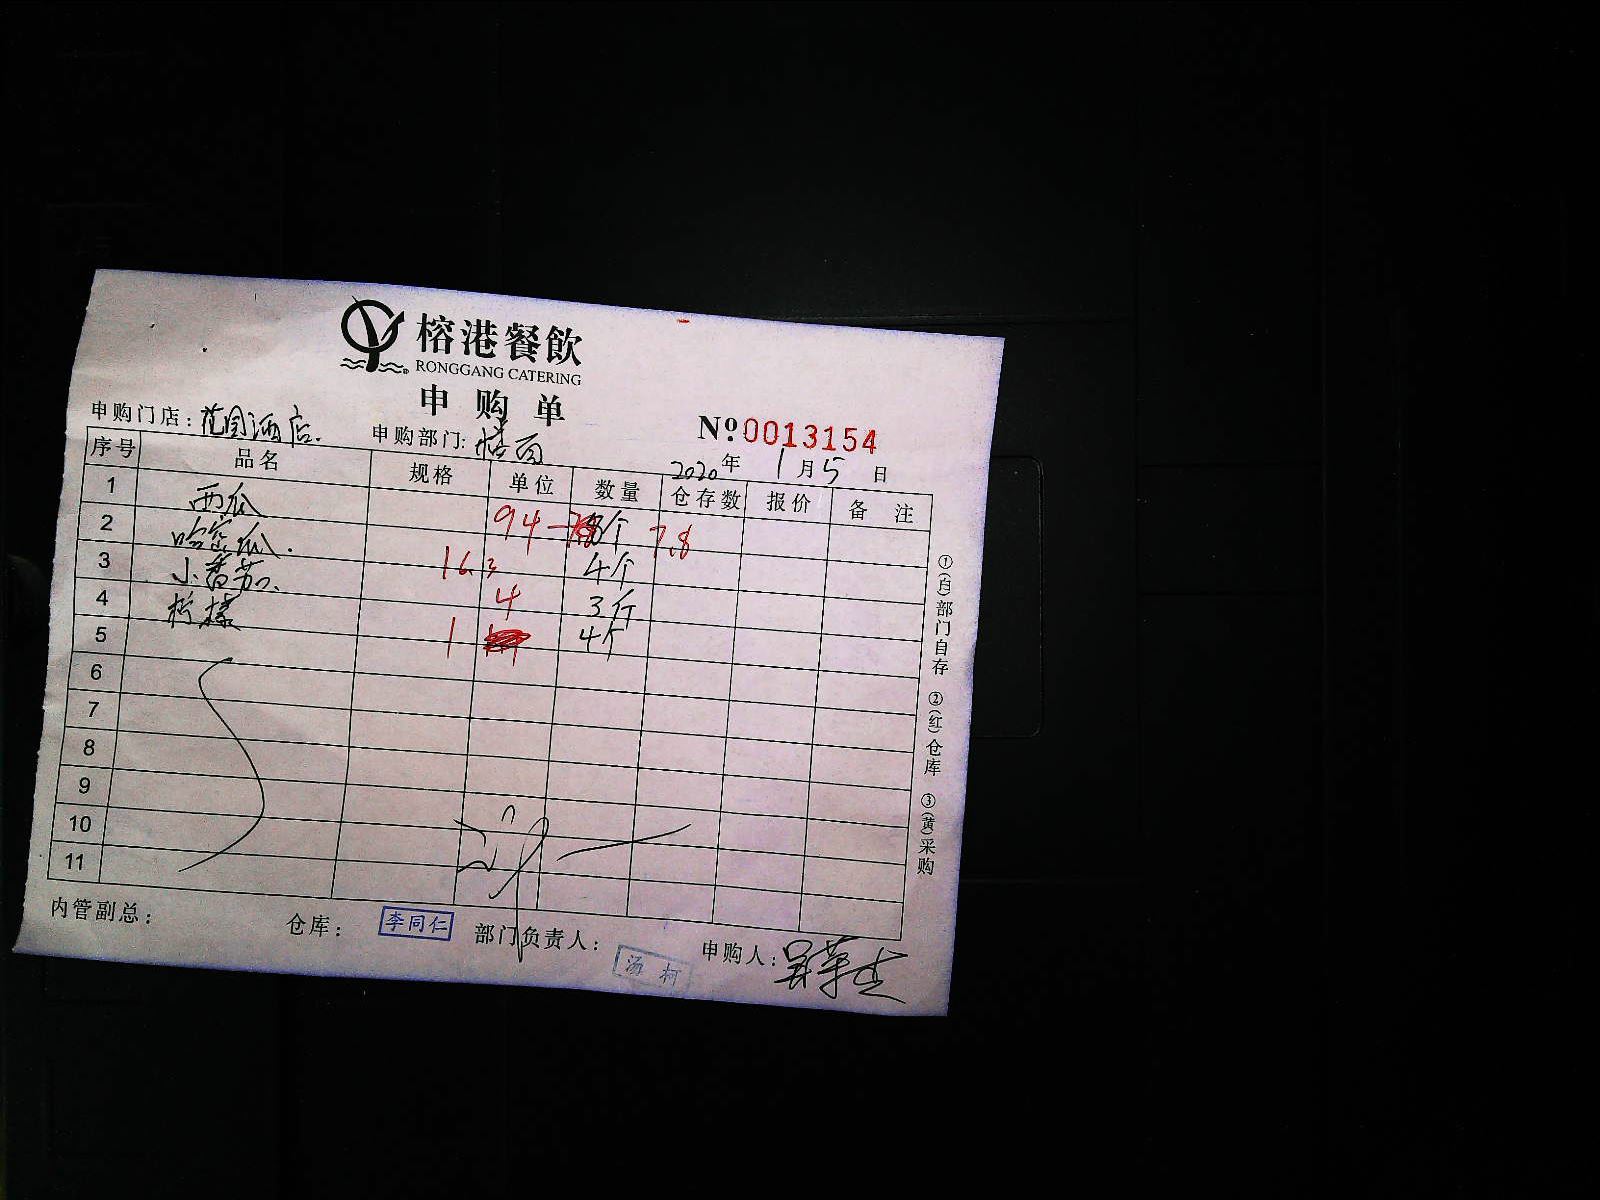 榕港餐飲
RONGGANG CATERING
申购单
申购门店：花园酒店. 申购部门: № 0013154
2020年1月5日
序号 品名 规格 单位 数量 仓存数 报价 备注
1 西瓜 94 8个 7.8
2 哈密瓜. 16.3 4个
3 小番茄. 4 3斤
4 柠檬 1 4个
5
6
7
8
9
10
11
①(白)部门自存 ②(红)仓库 ③(黄)采购
内管副总： 仓库： 李同仁 部门负责人： 汤柯 申购人：